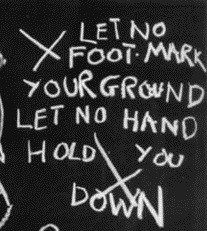 LET NO
FOOT·MARK
YOUR GROUND
LET NO HAND
HOLD YOU
DOWN